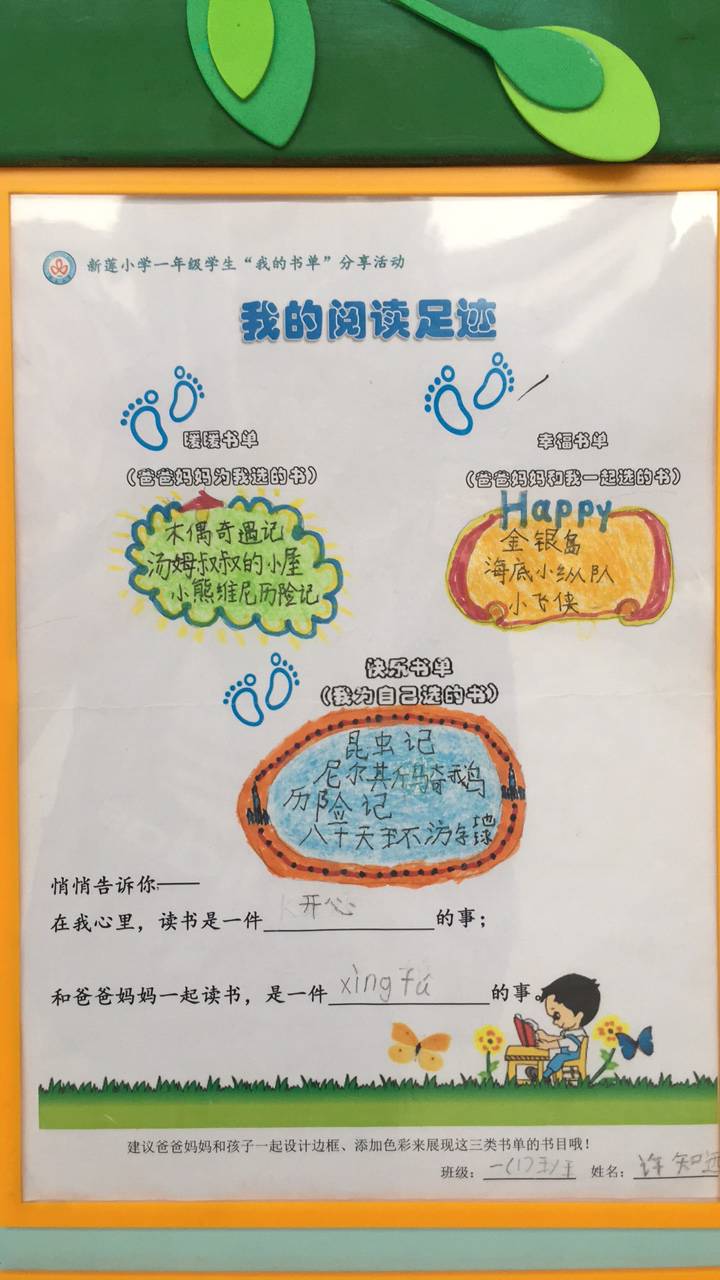 新莲小学一年级学生“我的书单”分享活动
我的阅读足迹
暖暖书单
(爸爸妈妈为我选的书)
木偶奇遇记
汤姆叔叔的小屋
小熊维尼历险记
幸福书单
(爸爸妈妈和我一起选的书)
Happy
金银岛
海底小纵队
小飞侠
快乐书单
(我为自己选的书)
昆虫记
尼尔其乐骑鹅
历险记
八十天环游地球
悄悄告诉你——
在我心里，读书是一件 开心 的事；
和爸爸妈妈一起读书，是一件 xìng fú 的事。
建议爸爸妈妈和孩子一起设计边框、添加色彩来展现这三类书单的书目哦！
班级：一(1)班 姓名：许知远